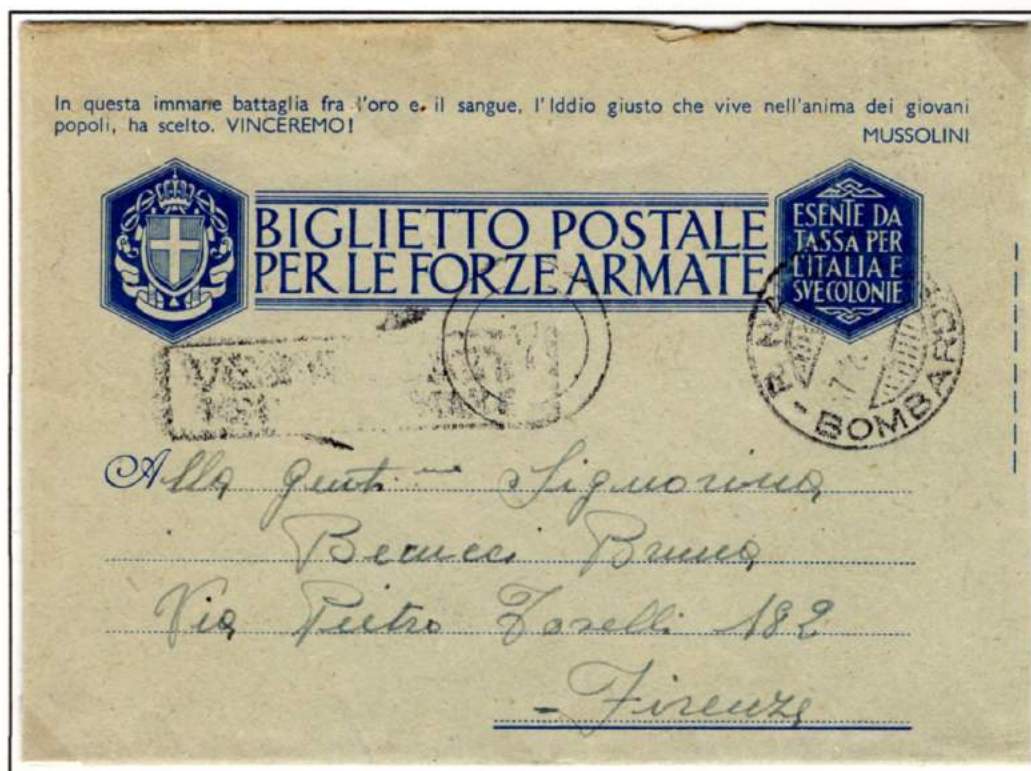 In questa immane battaglia fra l'oro e il sangue, l'Iddio giusto che vive nell'anima dei giovani
popoli, ha scelto. VINCEREMO!
MUSSOLINI
BIGLIETTO POSTALE
PER LE FORZE ARMATE
ESENTE DA
TASSA PER
L'ITALIA E
SVE COLONIE
BOMBARD
Alla Signorina
Bruna
Via Pietro 182
Firenze